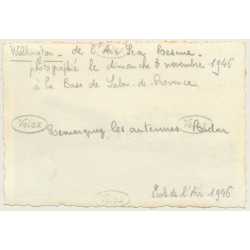 Wellington - de l'Air Sea Rescue -
photographié le dimanche 3 novembre 1946
à la Base de Salon-de-Provence
Velox Velox
Remarquez les antennes Radar
Velox
Ecole de l'Air 1946